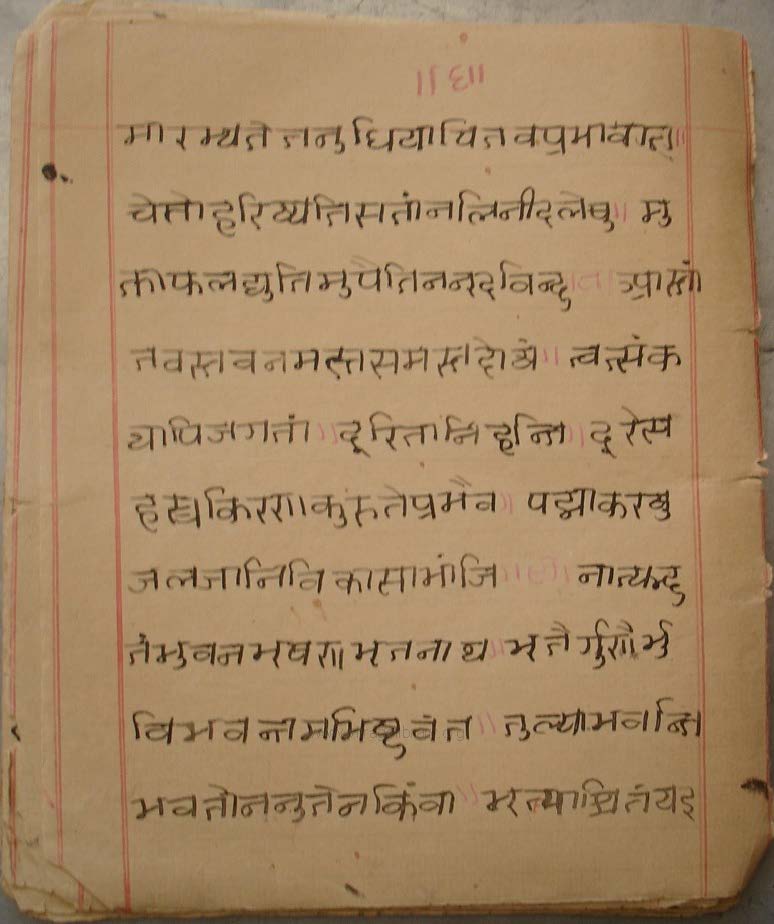 ॥४॥
मारभ्यते तनुधियापि तव प्रभावात्॥
चेतो हरिष्यति सतां नलिनीदलेषु॥ मु
क्ताफलद्युतिमुपैति ननूदविन्दु आस्तां
तवस्तवनमस्तसमस्तदोषं॥ त्वत्संक
थापि जगतां॥ दूरितानि हन्ति॥ दूरे स
हस्रकिरणा कुरुते प्रभैव॥ पद्माकरेषु
जलजानि विकासभांजि॥ नात्यद्भु
तं भुवनभूषण भूतनाथ भूतैर्गुणैर्भु
विभवन्तमभिष्टुवंत॥ तुल्या भवन्ति
भवतो ननु तेन किंवा॥ भूत्याश्रितं यइ